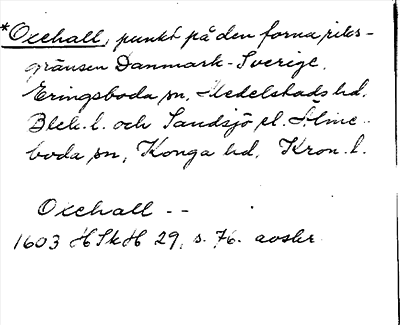 *Oxehall, punkt på den forna riks-
gränsen Danmark-Sverige.
Eringsboda sn, Medelstads hd.
Blek. l. och Sandsjö el. Älme-
boda sn, Konga hd, Kron. l.
Oxehall --
1603 HSkH 29, s. 76. avskr.